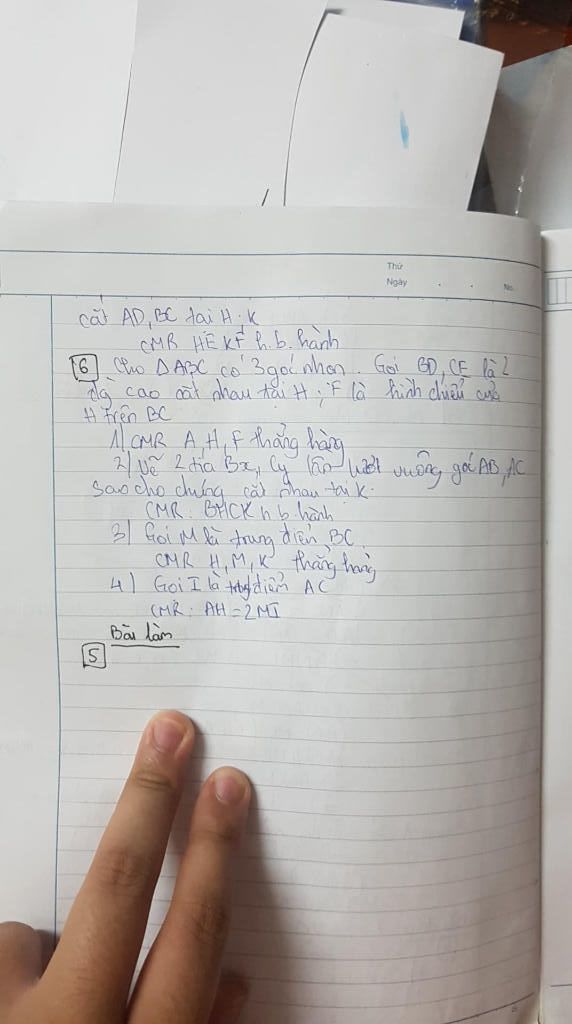 Thứ
Ngày . . No.
cắt AD, BC tại H. K
CMR HEKF h.b.hành
6 Cho ΔABC có 3 góc nhọn. Gọi BD, CE là 2
đg cao cắt nhau tại H; F là hình chiếu của
H trên BC
1) CMR A, H, F thẳng hàng
2) Vẽ 2 tia Bx, Cy lần lượt vuông góc AB, AC
Sao cho chúng cắt nhau tại K.
CMR: BHCK h.b.hành
3) Gọi M là trung điểm BC.
CMR H, M, K thẳng hàng
4) Gọi I là trung điểm AC
CMR: AH = 2MI
Bài làm
5